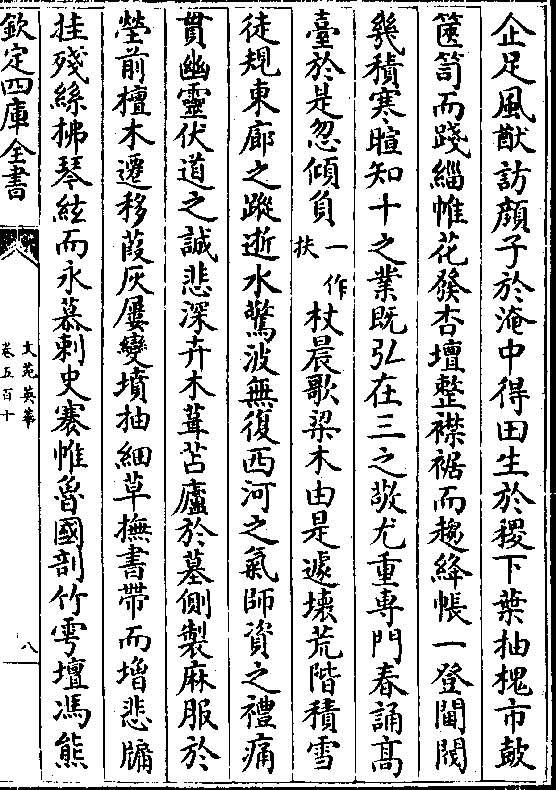 企足風猷訪顔子於淹中得田生於稷下葉抽槐市鼓
篋笥而踐緇帷花發杏壇整襟裾而趨絳帳一登閫閾
幾積寒暄知十之業既弘在三之敬尤重專門春誦髙
臺於是忽傾負一作扶杖晨歌梁木由是遽壊荒階積雪
徒規東廊之蹤逝水驚波無復西河之氣師資之禮痛
貫幽靈伏道之誠悲深卉木葺苫廬於墓側製麻服於
塋前檀木遷移葭灰屢變墳抽細草撫書帶而増悲牖
挂殘絲拂琴絃而永慕刺史褰帷魯國剖竹雩壇馮熊
欽定四庫全書
文苑英華
卷五百十
八